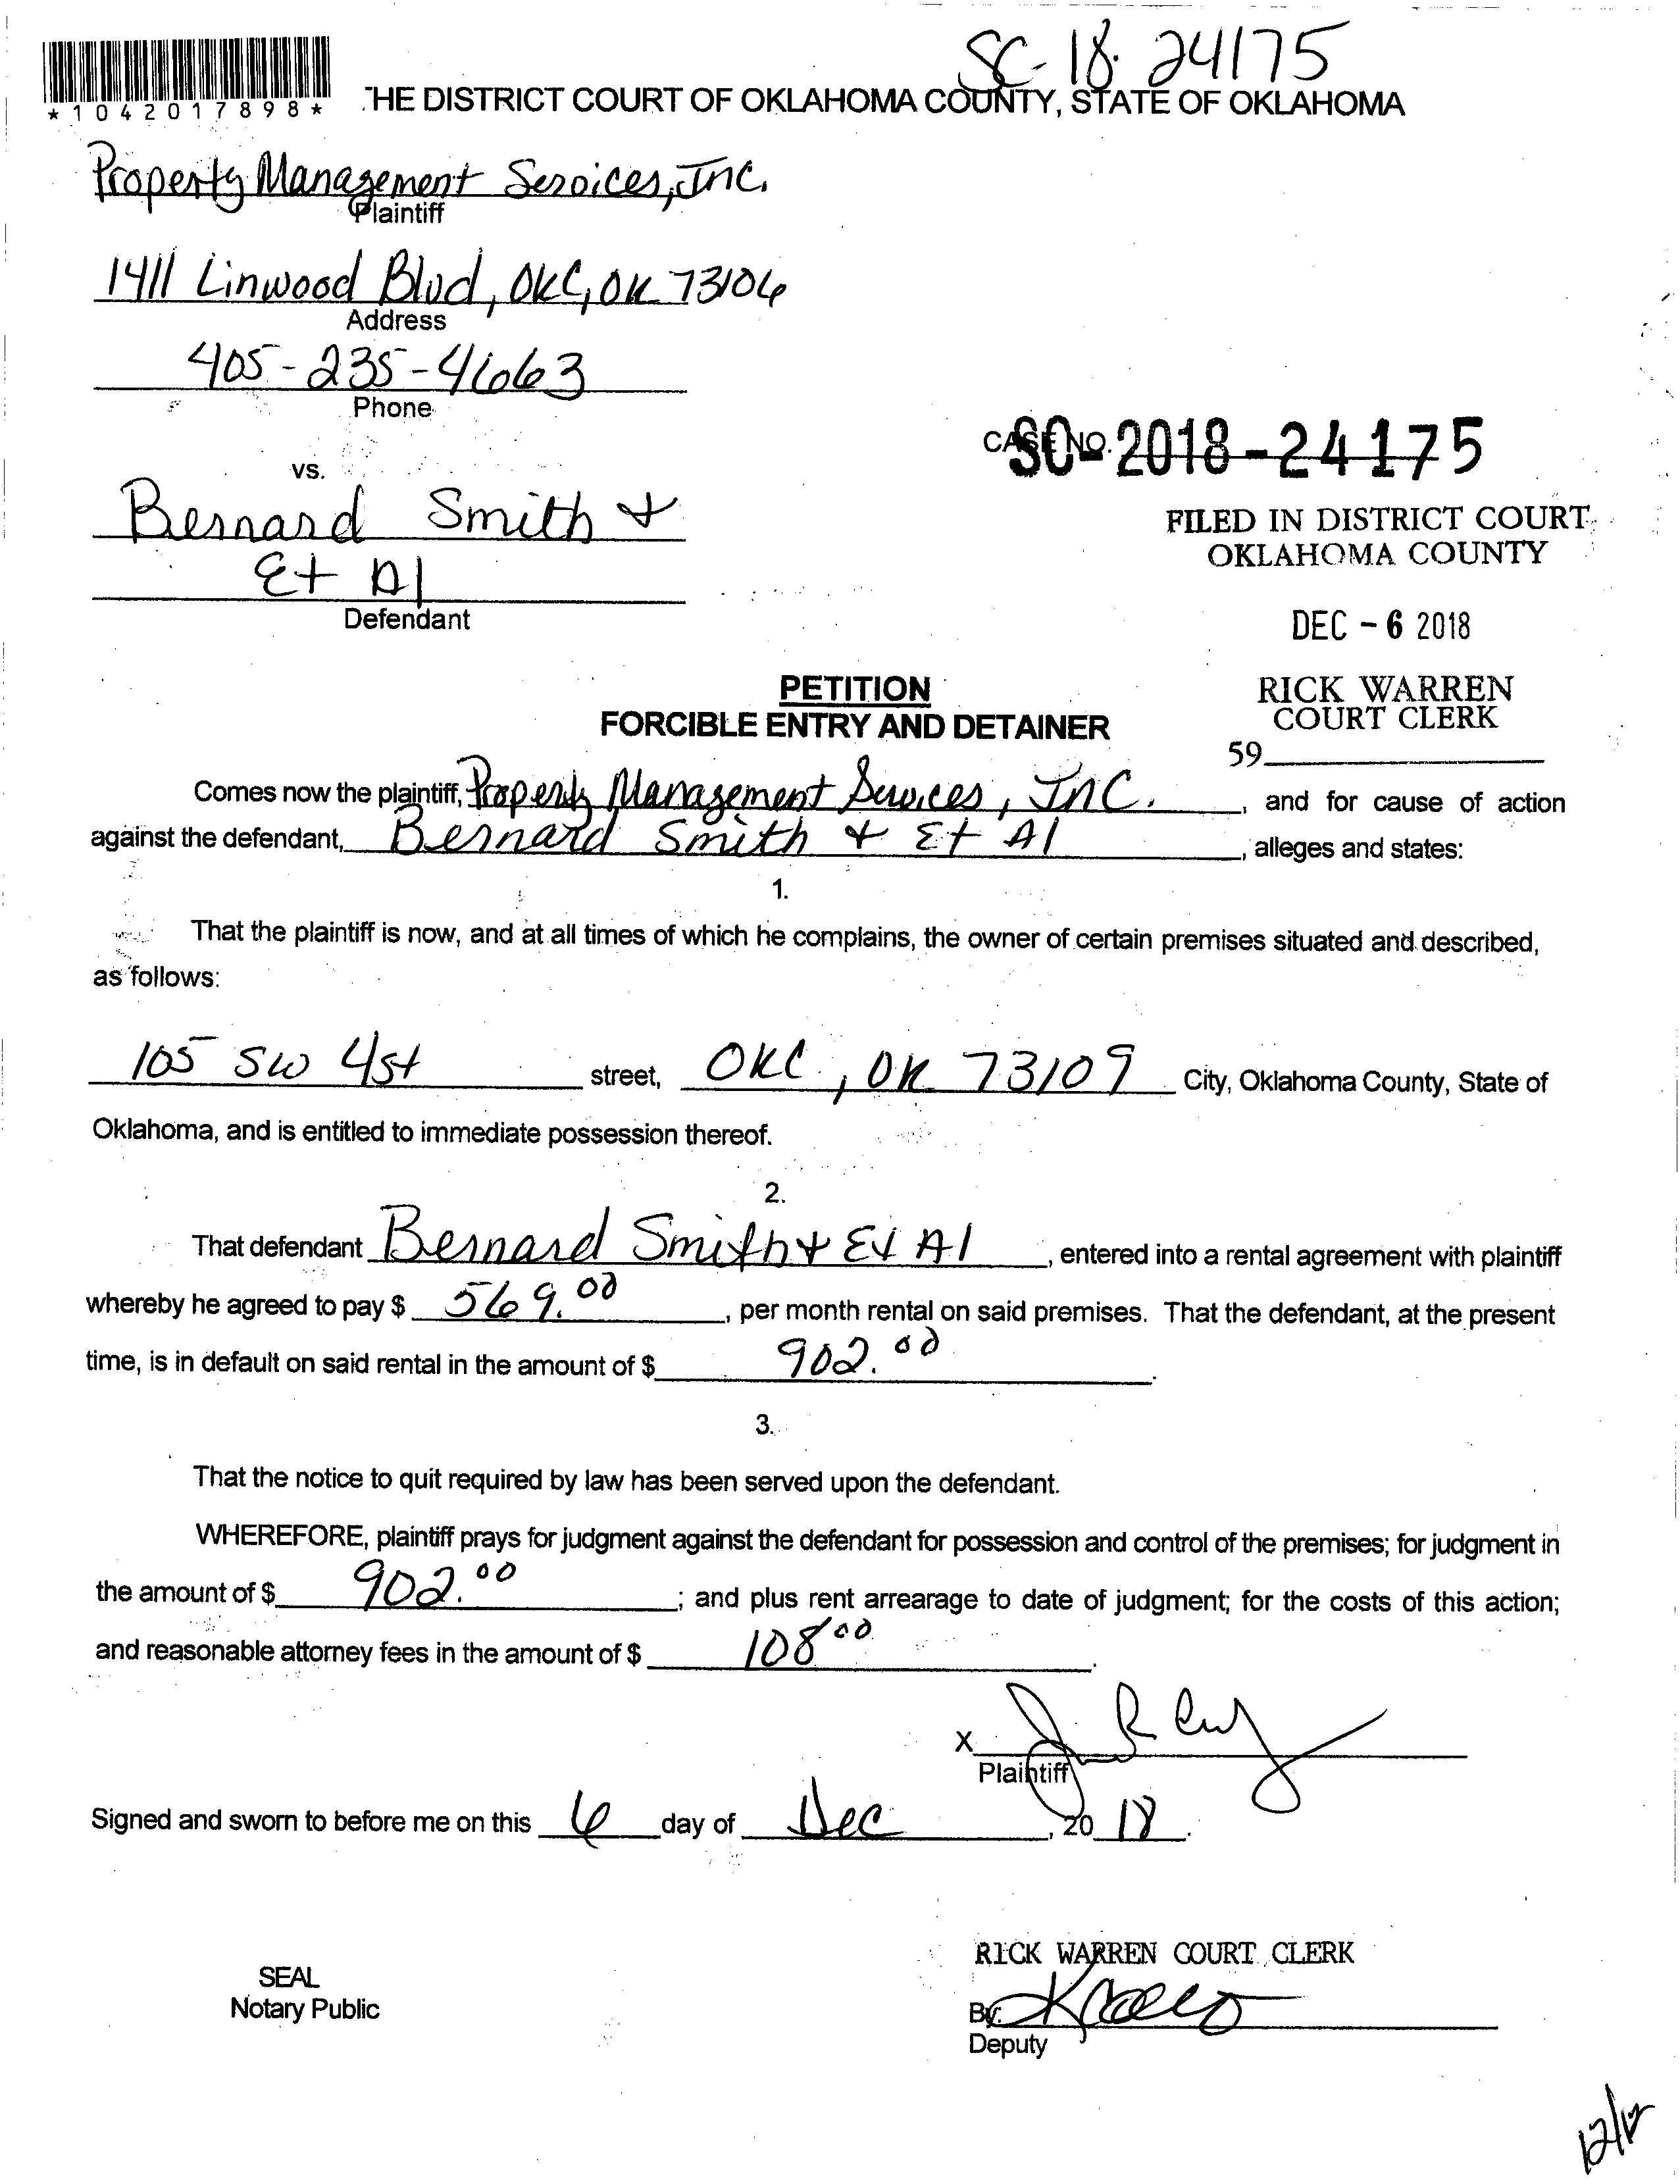 SC-18-24175
*1042017898*
THE DISTRICT COURT OF OKLAHOMA COUNTY, STATE OF OKLAHOMA
Property Management Services, Inc.
Plaintiff
1411 Linwood Blvd, OKC, OK 73106
Address
405-235-4663
Phone
CASE NO.
SC-2018-24175
vs.
FILED IN DISTRICT COURT
OKLAHOMA COUNTY
Bernard Smith &
Et Al
Defendant
DEC - 6 2018
RICK WARREN
COURT CLERK
59
PETITION
FORCIBLE ENTRY AND DETAINER
Comes now the plaintiff, Property Management Services, Inc., and for cause of action
against the defendant, Bernard Smith & Et Al, alleges and states:
1.
That the plaintiff is now, and at all times of which he complains, the owner of certain premises situated and described,
as follows:
105 SW 4st street, OKC, OK 73109 City, Oklahoma County, State of
Oklahoma, and is entitled to immediate possession thereof.
2.
That defendant Bernard Smith & Et Al, entered into a rental agreement with plaintiff
whereby he agreed to pay $ 569.00, per month rental on said premises. That the defendant, at the present
time, is in default on said rental in the amount of $ 902.00.
3.
That the notice to quit required by law has been served upon the defendant.
WHEREFORE, plaintiff prays for judgment against the defendant for possession and control of the premises; for judgment in
the amount of $ 902.00; and plus rent arrearage to date of judgment; for the costs of this action;
and reasonable attorney fees in the amount of $ 108 00.
X
Plaintiff
Signed and sworn to before me on this 6 day of Dec, 20 18.
RICK WARREN COURT CLERK
SEAL
Notary Public
By:
Deputy
12/12